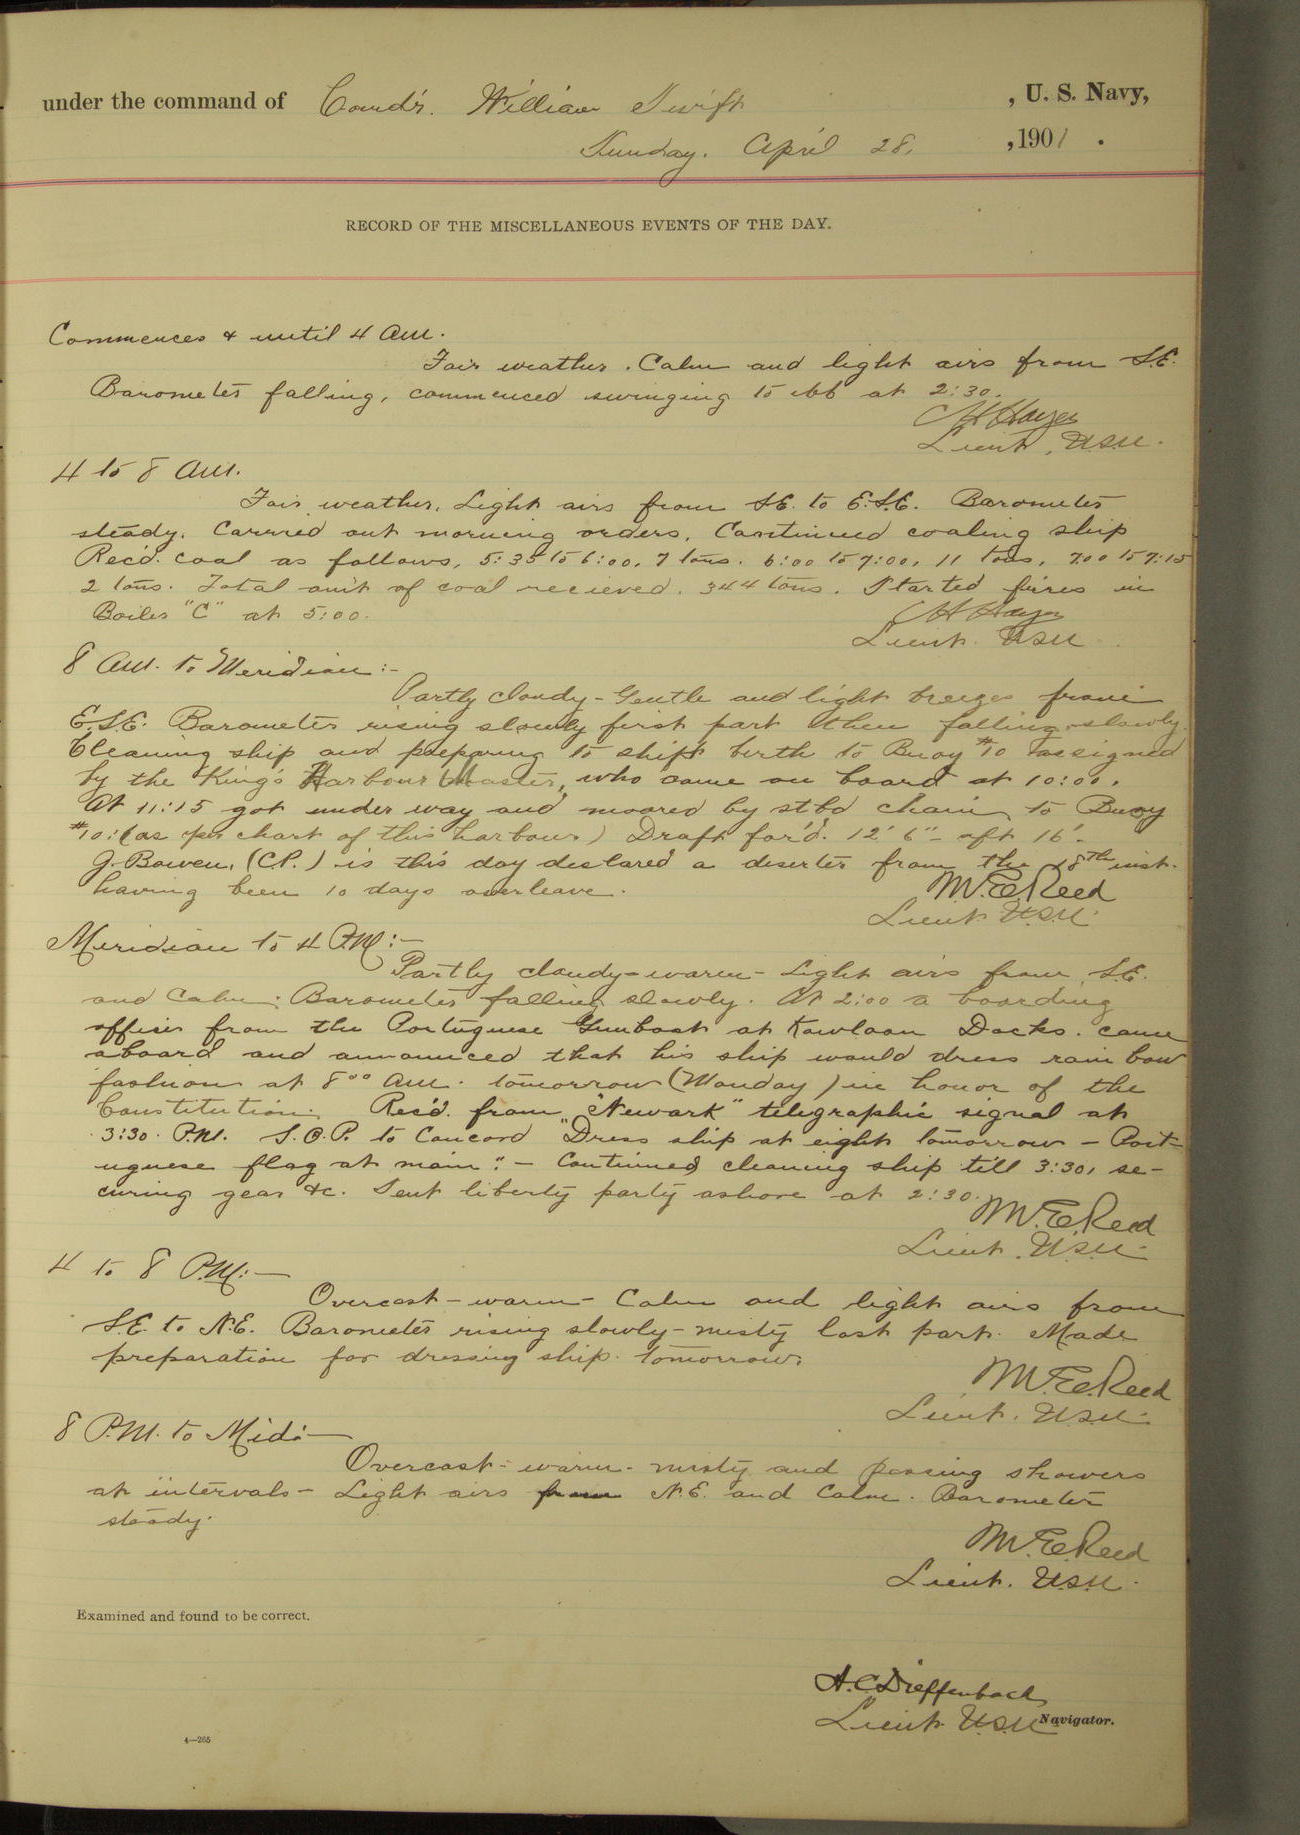 under the command of Comd'r. William Swift , U. S. Navy,
Sunday. April 28, , 1901 .
RECORD OF THE MISCELLANEOUS EVENTS OF THE DAY.
Commences & until 4 AM.
Fair weather. Calm and light airs from S.E.
Barometer falling, commenced swinging to ebb at 2:30.
C H Hayes
Lieut, USN.
4 to 8 AM.
Fair weather, Light airs from S.E. to E.S.E. Barometer
steady. Carried out morning orders. Continued coaling ship
Rec'd. coal as follows, 5:35 to 6:00, 7 tons. 6:00 to 7:00, 11 tons, 7.00 to 7:15
2 tons. Total am't of coal recieved. 344 tons. Started fires in
Boiler "C" at 5:00.
C H Hayes
Lieut. USN
8 AM. to Meridian:-
Partly cloudy - Gentle and light breezes from
E.S.E. Barometer rising slowly first part then falling slowly.
Cleaning ship and preparing to shift berth to Buoy #10 assigned
by the King's Harbour Master, who came on board at 10:00.
At 11:15 got under way and moored by stb'd chain to Buoy
#10: (as per chart of this harbour) Draft for'd. 12' 6" - aft 16'.
G. Bowen, (C.P.) is this day declared a deserter from the 18th inst.
having been 10 days overleave.
M. E. Reed
Lieut. USN.
Meridian to 4 P.M:-
Partly cloudy - warm - Light airs from S.E.
and Calm. Barometer falling slowly. At 2:00 a boarding
officer from the Portuguese Gunboat at Kowloon Docks. came
aboard and announced that his ship would dress rainbow
fashion at 8⁰⁰ AM. tomorrow (Monday) in honor of the
Constitution. Rec'd. from "Newark" telegraphic signal at
3:30 P.M. S.O.P. to Concord "Dress ship at eight tomorrow - Port-
uguese flag at main". - Continued cleaning ship till 3:30, se-
curing gear &c. Sent liberty party ashore at 2:30.
M. E. Reed
Lieut. USN.
4 to 8 P.M:-
Overcast - warm - Calm and light airs from
S.E. to N.E. Barometer rising slowly - misty last part. Made
preparation for dressing ship tomorrow.
M. E. Reed
Lieut. USN.
8 P.M. to Mid:-
Overcast - warm - misty and passing showers
at intervals - Light airs from N.E. and Calm. Barometer
steady.
M. E. Reed
Lieut. USN.
Examined and found to be correct.
A. C. Dieffenbach
Lieut. USN Navigator.
4—265